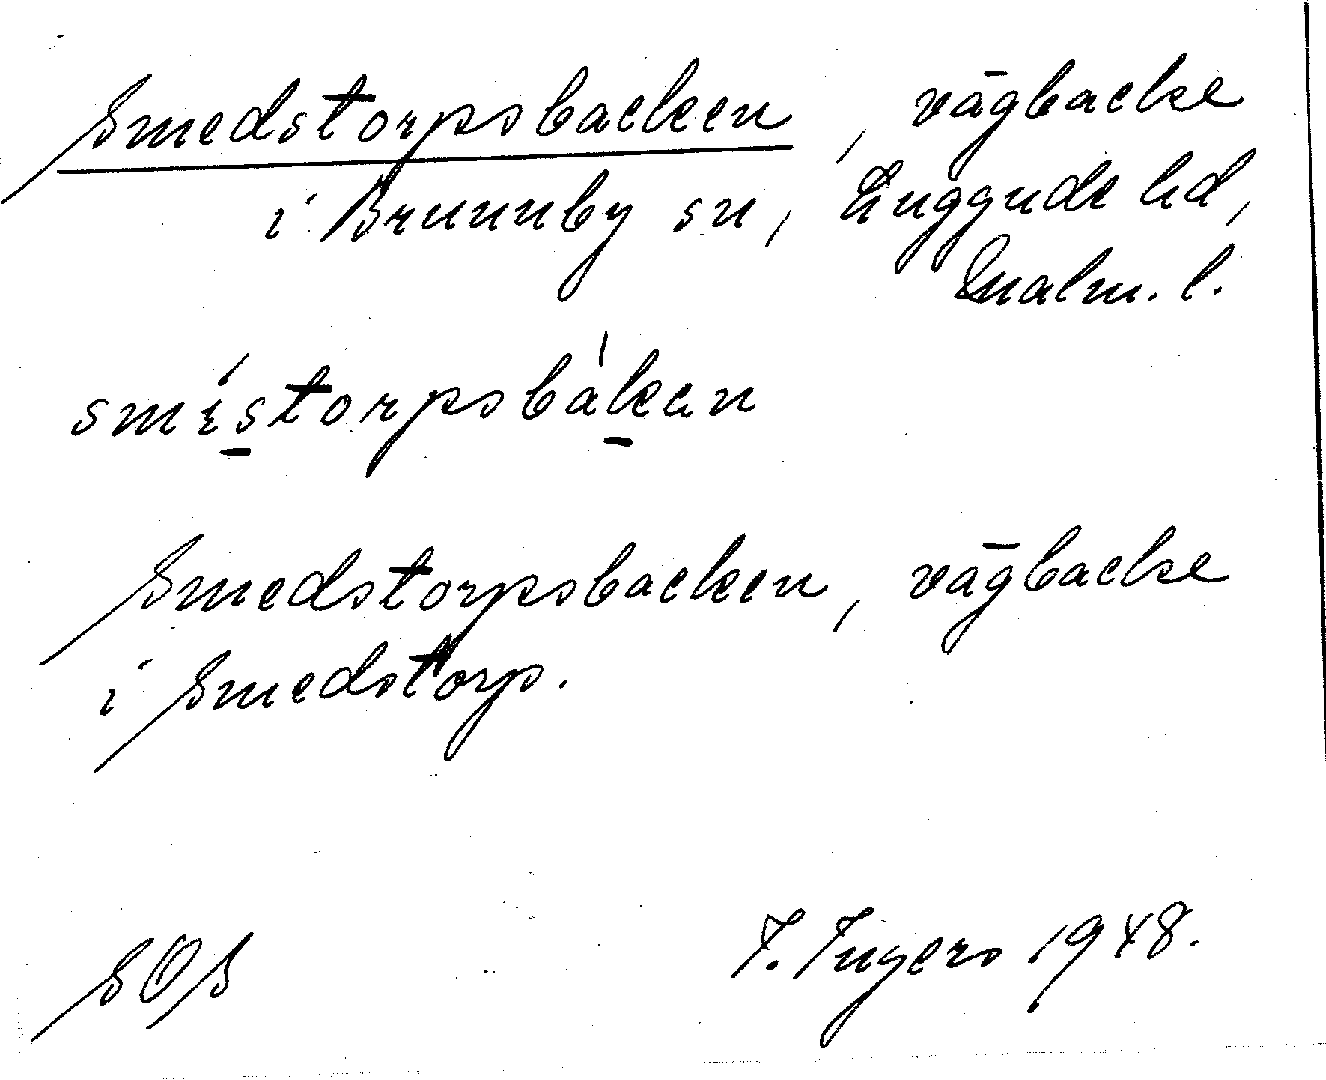 Smedstorpsbacken, vägbacke
i Brunnby sn, Luggude hd,
Malm. l.
smístorpsbàkan
Smedstorpsbacken, vägbacke
i Smedstorp.
SOS
I. Ingers 1948.